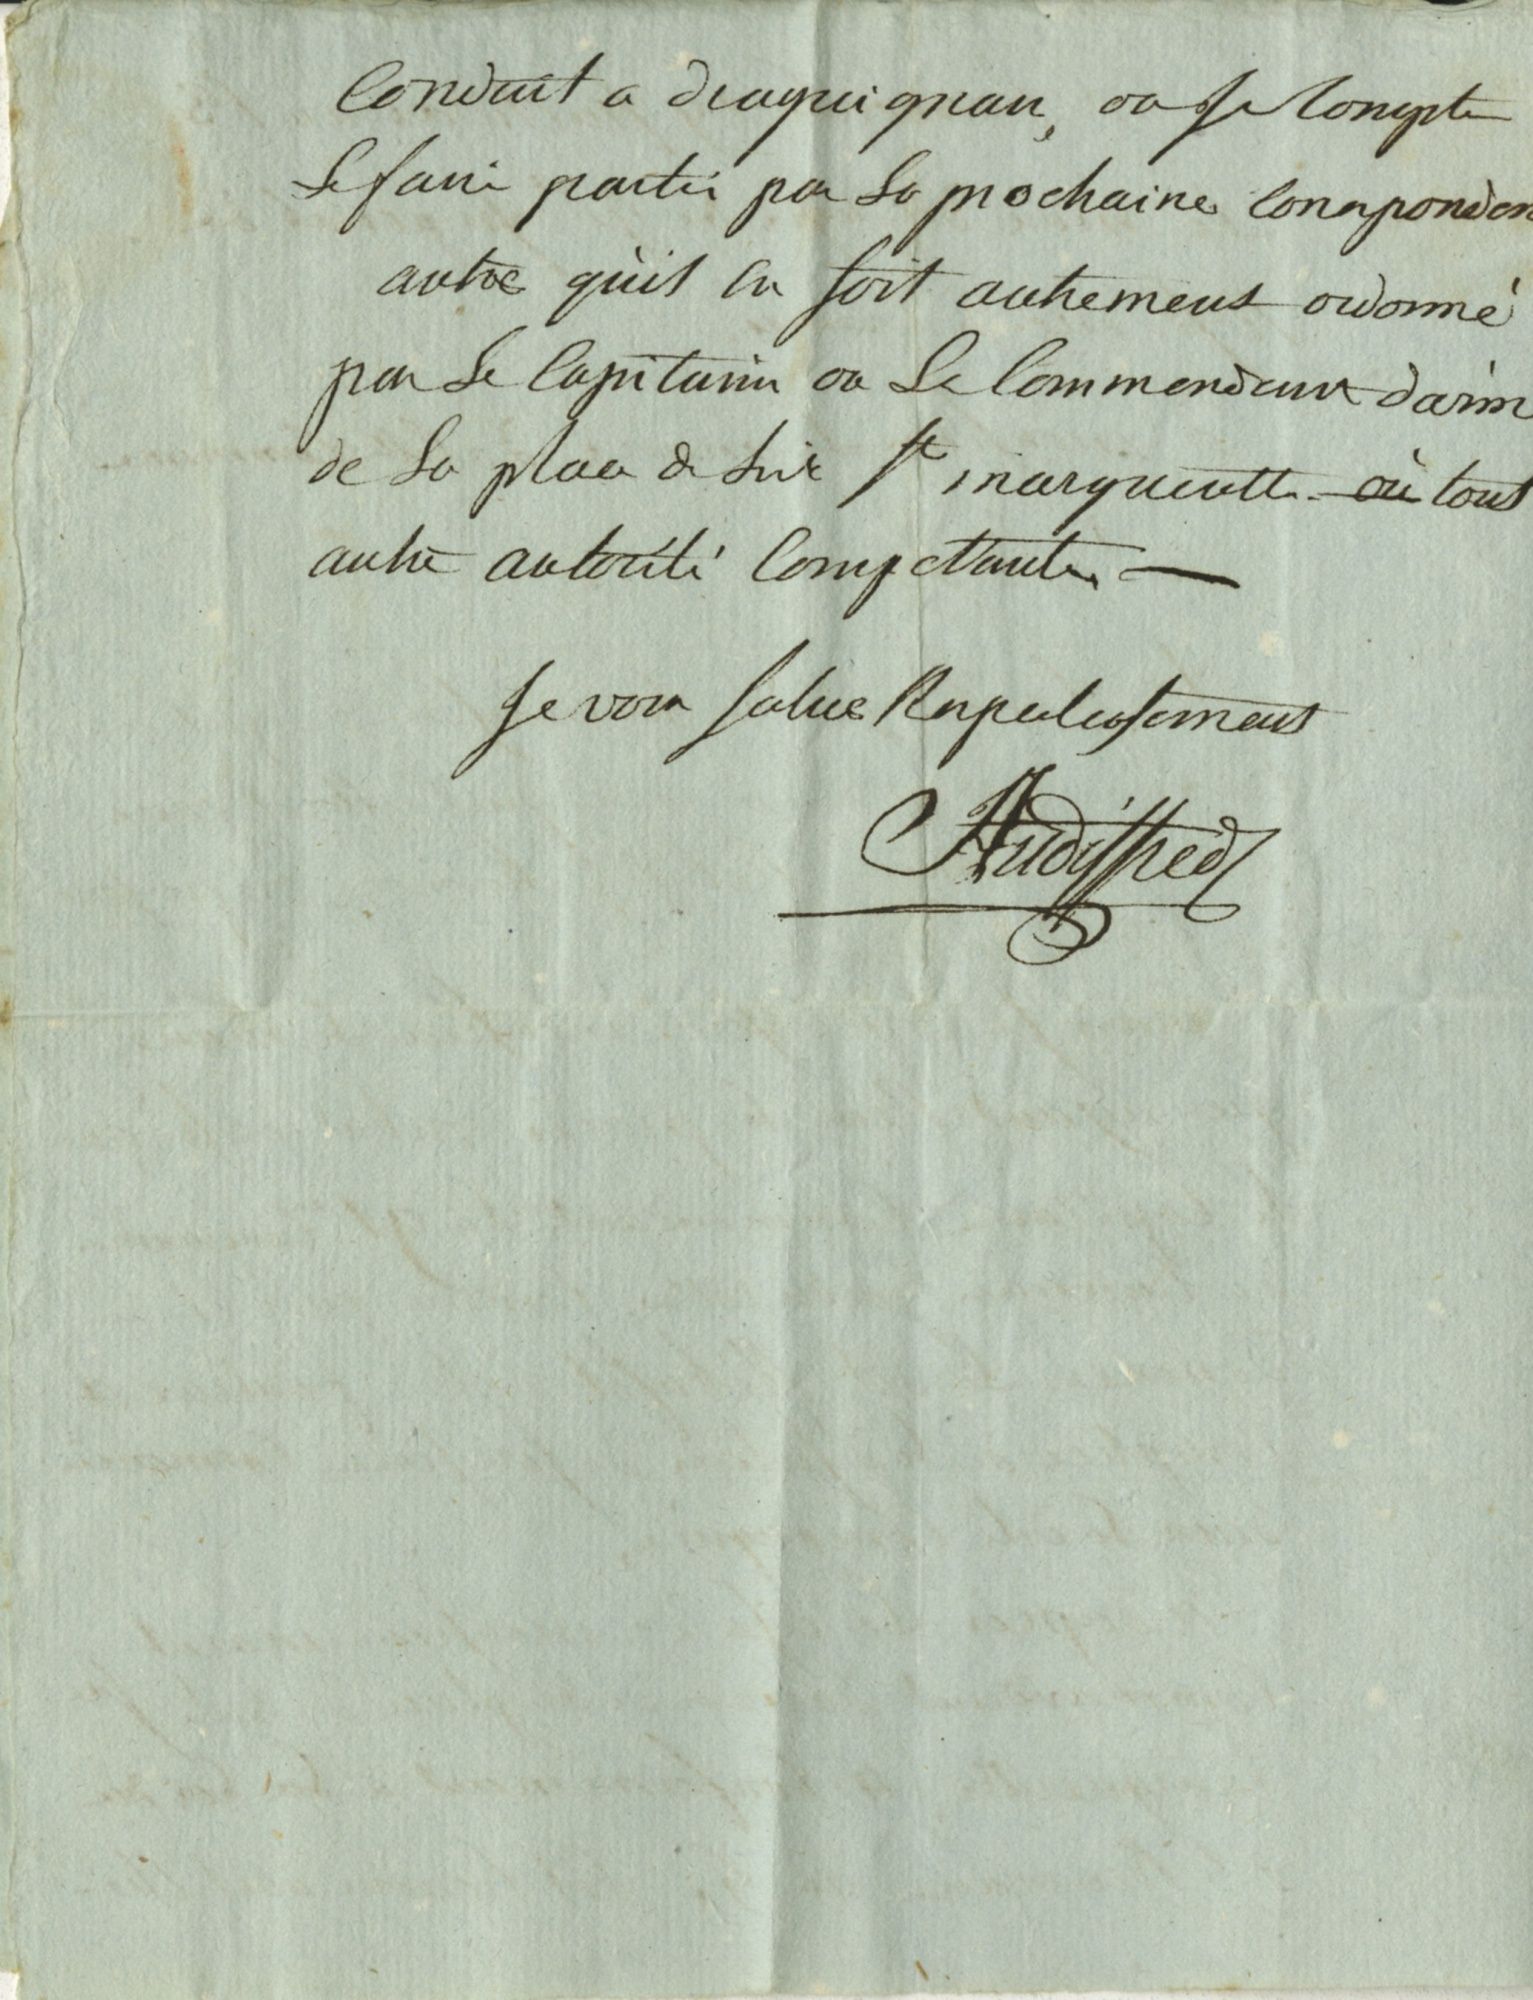 Conduit a draguignan, ou Je Compte
Le faire partir par La prochaine Correspondan
autre qu'il en soit autrement ordonné
par Le Capitaine ou Le Commendant d'arm
de La place de Lile Ste margueritte ou tout
autre autorité Competante. —
Je vous salue Respectueusement
Audiffred